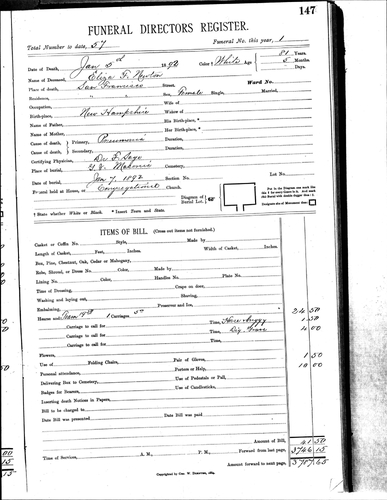 147
FUNERAL DIRECTORS REGISTER.
Total Number to date, 57 Funeral No. this year, 1
Date of Death, Jan 3d 1892 Color † White Age 81 Years
5 Months
Days
Name of Deceased, Eliza F. Newton
Place of death, San Francisco Street, Ward No.
Residence, " Sex, Female Single, Married,
Occupation, Wife of
Birthplace, New Hampshire Widow of
Name of Father, His Birth-place, *
Name of Mother, Her Birth-place, *
Cause of death, Primary, Pneumonia Duration,
Cause of death, Secondary, Duration,
Certifying Physician, Dr
Place of burial, Masonic Cemetery,
Date of burial, Jan 7. 1892 Section No. Lot No.
Funeral held at House, or Congregational Church.
Diagram of Burial Lot.
† State whether White or Black. * Insert Town and State.
ITEMS OF BILL. (Cross out items not furnished.)
Casket or Coffin No. Style, Made by
Length of Casket, Feet, Inches. Width of Casket, Inches.
Box, Pine, Chestnut, Oak, Cedar or Mahogany,
Robe, Shroud, or Dress No. Color, Made by
Lining No. Color, Handles No. Plate No.
Time of Dressing, Crape on door,
Washing and laying out, Shaving,
Embalming, Preserver and Ice,
Hearse and Carriages 24 50
Carriage to call for Time, Buggy 1 50
Carriage to call for Time, Dig. Grave 4 00
Carriage to call for Time,
Flowers, 1 50
Use of Folding Chairs, Pair of Gloves,
Personal attendance, Porters or Help, 10 00
Delivering Box to Cemetery, Use of Pedestals or Pall,
Badges for Bearers, Use of Candlesticks,
Inserting death Notices in Papers,
Bill to be charged to
Date Bill was presented Date Bill was paid
Amount of Bill, 41 50
Time of Services, A. M., P. M., Forward from last page, 3746 15
Amount forward to next page, 3787 65